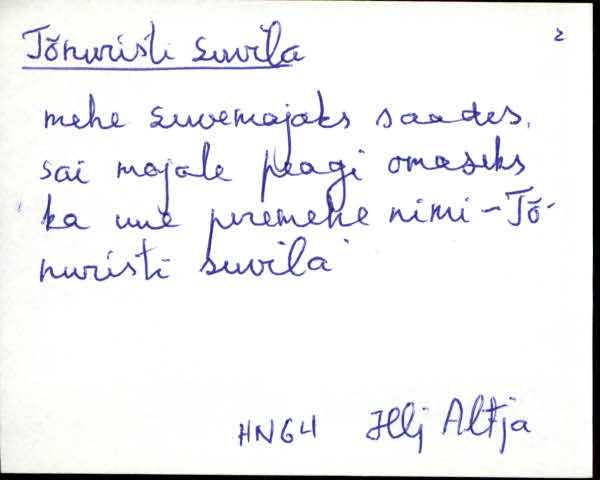 Tõnuristi suvila
2
mehe suvemajaks saades,
sai majale peagi omaseks
ka uue peremehe nimi - Tõ-
nuristi suvila
HNG4 Hlj Altja